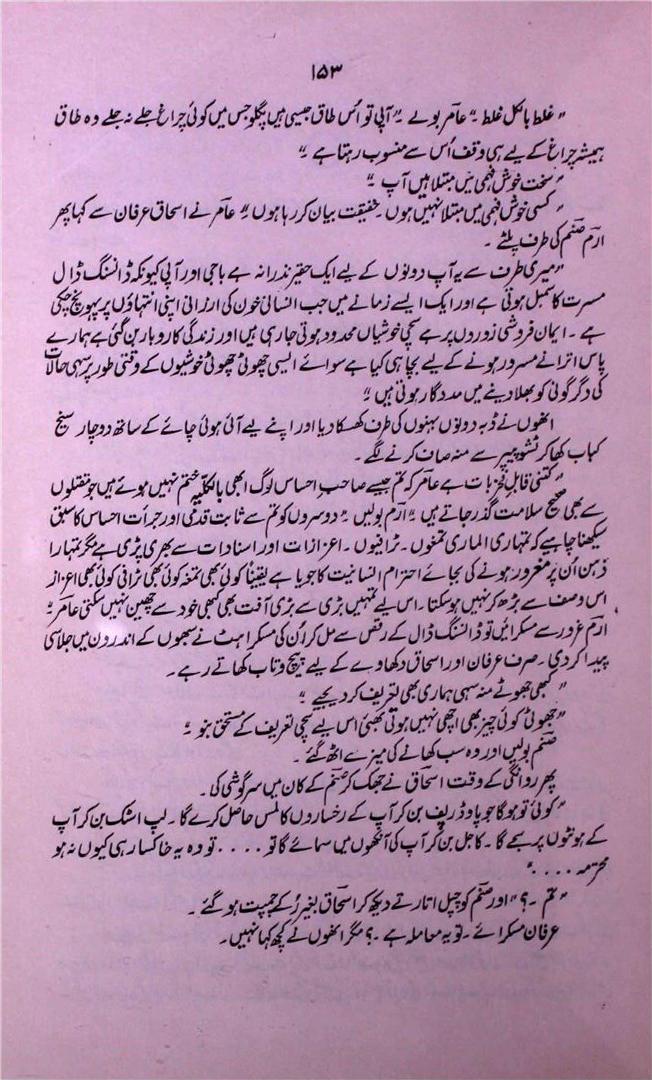 ۱۵۳
"غلط بالکل غلط ۔" عامر بولے ۔" آپی تو اُس طاق جیسی ہیں پگلو جس میں کوئی چراغ جلے نہ جلے وہ طاق
ہمیشہ چراغ کے لیے ہی وقف اُس سے منسوب رہتا ہے ۔"
"سخت خوش فہمی میں مبتلا ہیں آپ ۔"
"کسی خوش فہمی میں مبتلا نہیں ہوں ۔ حقیقت بیان کر رہا ہوں ۔" عامر نے اسحاق عرفان سے کہا پھر
ارم صنم کی طرف پلٹے ۔
"میری طرف سے یہ آپ دونوں کے لیے ایک حقیر نذرانہ ہے باجی اور آپی کیونکہ ڈانسنگ ڈال
مسرت کا سمبل ہوتی ہے اور ایک ایسے زمانے میں جب انسانی خون کی ارزانی اپنی انتہاؤں پر پہونچ چکی
ہے ۔ ایمان فروشی زوروں پر ہے سچی خوشیاں محدود ہوتی جا رہی ہیں اور زندگی کاروبار بن گئی ہے ہمارے
پاس اترانے مسرور ہونے کے لیے بچا ہی کیا ہے سوائے ایسی چھوٹی چھوٹی خوشیوں کے وقتی طور پر سہی حالات
کی دگرگونی کو بھلا دینے میں مددگار ہوتی ہیں ۔"
انھوں نے ڈبہ دونوں بہنوں کی طرف کھسکا دیا اور اپنے لیے آئی ہوئی چائے کے ساتھ دو چار سیخ
کباب کھا کر ٹشو پیپر سے منہ صاف کرنے لگے ۔
"کتنی قابلِ فخر بات ہے عامر کہ تم جیسے صاحبِ احساس لوگ ابھی بالکلیہ ختم نہیں ہوئے ہیں جو مقتلوں
سے بھی صحیح سلامت گذر جاتے ہیں ۔" ارم بولیں ۔" دوسروں کو تم سے ثابت قدمی اور جرأت احساس کا سبق
سیکھنا چاہیے کہ تمہاری الماری تمغوں ۔ ٹرافیوں ۔ اعزازات اور اسنادات سے بھری پڑی ہے مگر تمہارا
ذہن اُن پر مغرور ہونے کی بجائے احترام انسانیت کا جویا ہے یقیناً کوئی بھی تمغہ کوئی بھی ٹرافی کوئی بھی اعزاز
اس وصف سے بڑھ کر نہیں ہو سکتا ۔ اس لیے تمہیں بڑی سے بڑی آفت بھی کبھی خود سے چھین نہیں سکتی عامر ۔"
ارم غرور سے مسکرائیں تو ڈانسنگ ڈال کے رقص سے مل کر اُن کی مسکراہٹ نے سبھوں کے اندرون میں جلا سی
پیدا کر دی ۔ صرف عرفان اور اسحاق دکھاوے کے لیے پیچ و تاب کھاتے رہے ۔
"کبھی جھوٹے منہ سہی ہماری بھی تعریف کر دیجیے ۔"
"جھوٹی کوئی چیز بھی اچھی نہیں ہوتی بھئی اس لیے سچی تعریف کے مستحق بنو ۔"
صنم بولیں اور وہ سب کھانے کی میز سے اٹھ گئے ۔
پھر روانگی کے وقت اسحاق نے جھک کر صنم کے کان میں سرگوشی کی ۔
"کوئی تو ہوگا جو پاوڈر پف بن کر آپ کے رخساروں کا لمس حاصل کرے گا ۔ لپ اسٹک بن کر آپ
کے ہونٹوں پر سجے گا ۔ کاجل بن کر آپ کی آنکھوں میں سمائے گا تو .... تو وہ یہ خاکسار ہی کیوں نہ ہو
محترمہ ...."
"تم ۔؟" اور صنم کو چپل اتارتے دیکھ کر اسحاق بغیر رُکے چمپت ہو گئے ۔
عرفان مسکرائے ۔ تو یہ معاملہ ہے ۔؟ مگر انھوں نے کچھ کہا نہیں ۔